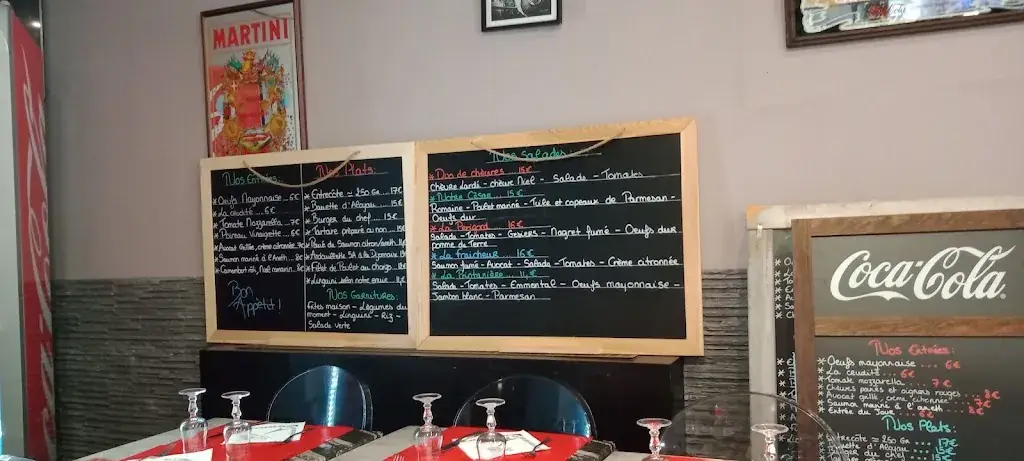 MARTINI
Nos Entrées:
* Oeufs Mayonnaise ... 6€
* La crudité ... 6€
* Tomate Mozzarella ... 7€
* Poireau Vinaigrette ... 6€
* Avocat Grillé, crème citronnée
* Saumon mariné à l'Aneth ... 8€
* Camembert rôti, Miel romarin
Bon Appétit !
Nos Plats:
* Entrecôte ≃ 250 Gr ... 17€
* Bavette d'Aloyau ... 15€
* Burger du chef ... 15€
* Tartare préparé ou non ... 15€
* Pavé de Saumon citron/aneth
* Andouillette 5A à la Dijonnaise
* Filet de Poulet au champi
* Linguini selon notre envie
Nos Garnitures:
Frites maison - Légumes du
moment - Linguini - Riz -
Salade verte
Nos Salades:
* Duo de chèvres ... 15€
Chèvre lardé - chèvre Miel - Salade - Tomates
* Notre César ... 15€
Romaine - Poulet mariné - Tuile et copeaux de Parmesan -
Oeufs dur
* Le Périgord ... 16€
Salade - Tomates - Gésiers - Magret fumé - Oeufs dur
pomme de Terre
* La fraîcheur ... 16€
Saumon fumé - Avocat - Salade - Tomates - Crème citronnée
* La Printanière ... 14€
Salade - Tomates - Emmental - Oeufs mayonnaise -
Jambon blanc - Parmesan
Coca-Cola
Nos Entrées:
* Oeufs mayonnaise .... 6€
* La crudité ... 6€
* Tomate mozzarella ... 7€
* Chèvres panés et oignons rouges .. 8€
* Avocat grillé, crème citronnée
* Saumon mariné à l'aneth ... 8€
* Entrée du Jour ... 6€
Nos Plats:
* Entrecôte ≃ 250 Gr ... 17€
* Bavette d'Aloyau ... 15€
* Burger du chef ... 15€